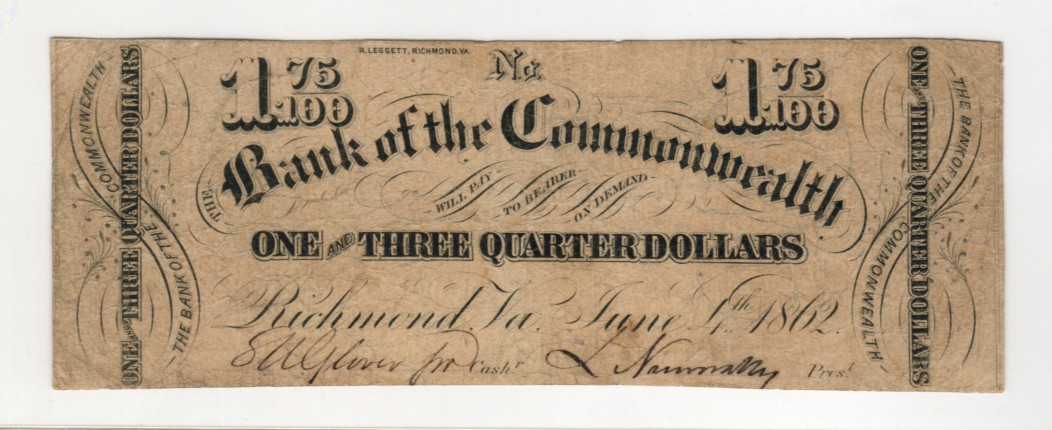 R. LEGGETT, RICHMOND, VA.
1 75/100 No. 1 75/100
THE Bank of the Commonwealth
WILL PAY TO BEARER ON DEMAND
ONE AND THREE QUARTER DOLLARS
Richmond, Va. June 4th 1862.
Cashr Prest
ONE AND THREE QUARTER DOLLARS
THE BANK OF THE COMMONWEALTH
ONE AND THREE QUARTER DOLLARS
THE BANK OF THE COMMONWEALTH